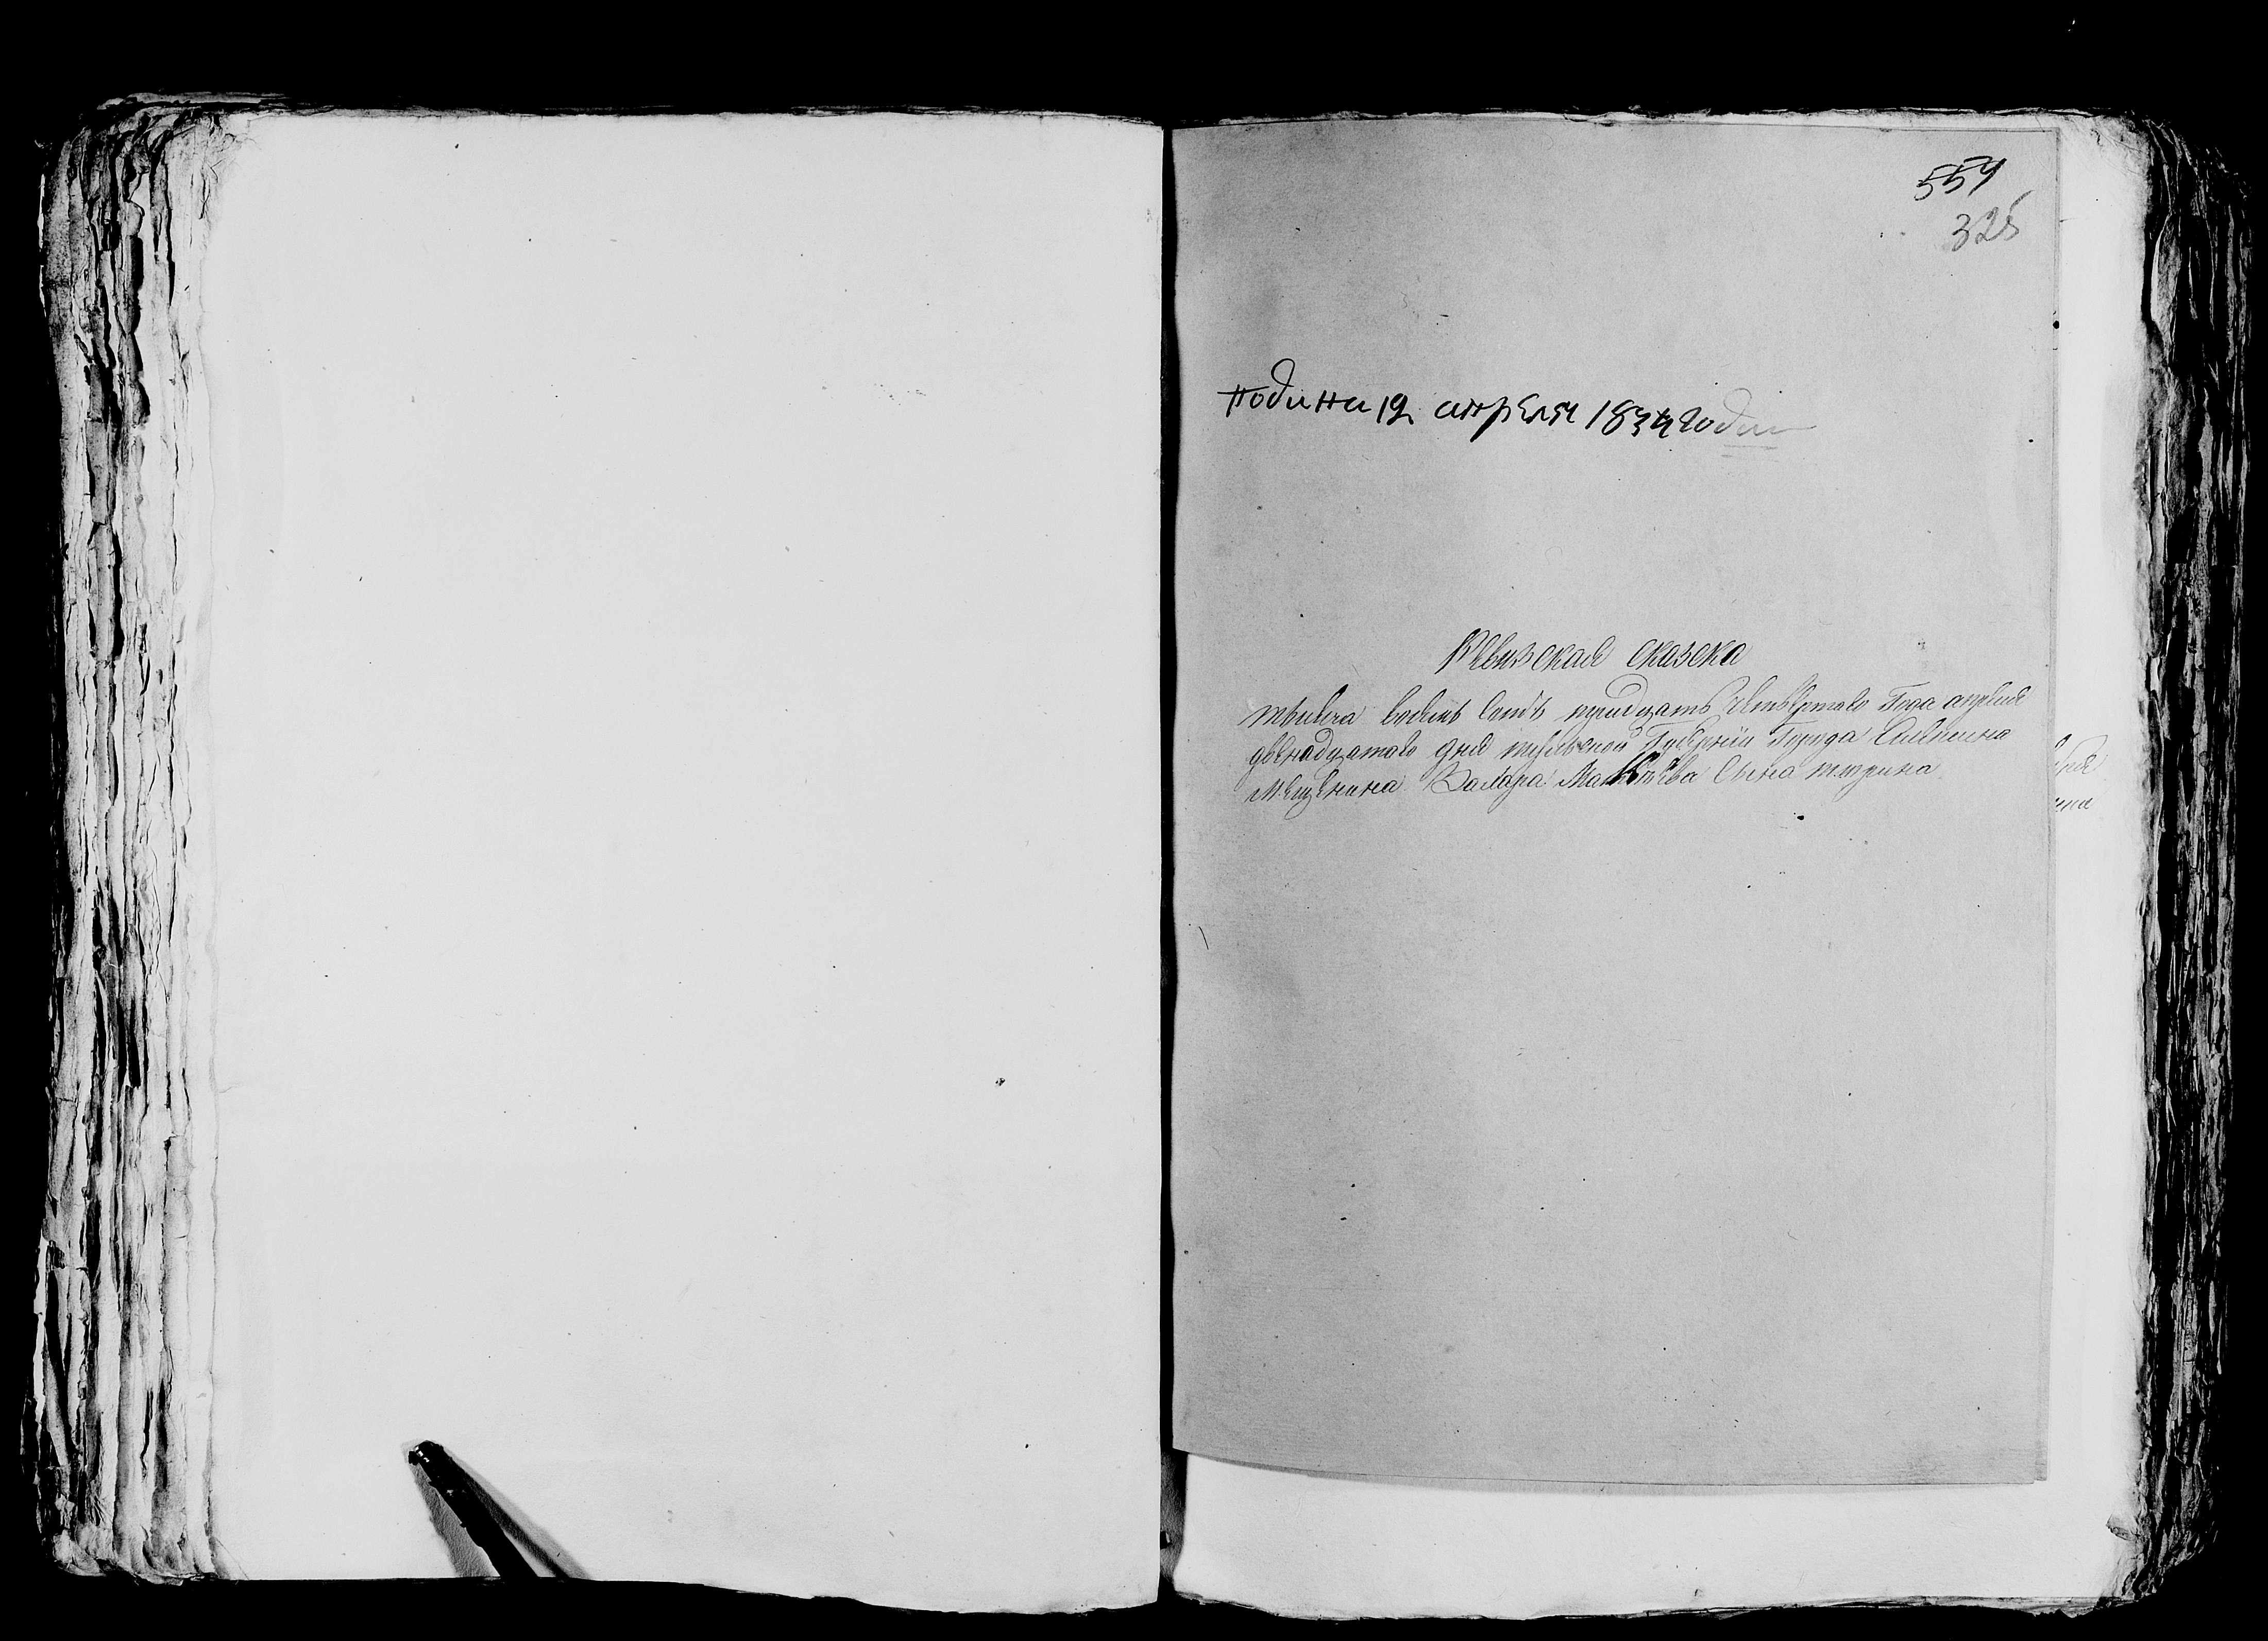 554
325
подана 12 апреля 1834 года
Ревизская сказка
тысяча восемь сотъ тридцать четвертаго Года апреля
двенадцатаго дня тульской Губернии Города Алексина
мещенина Захара Матвеева Сына тюрина